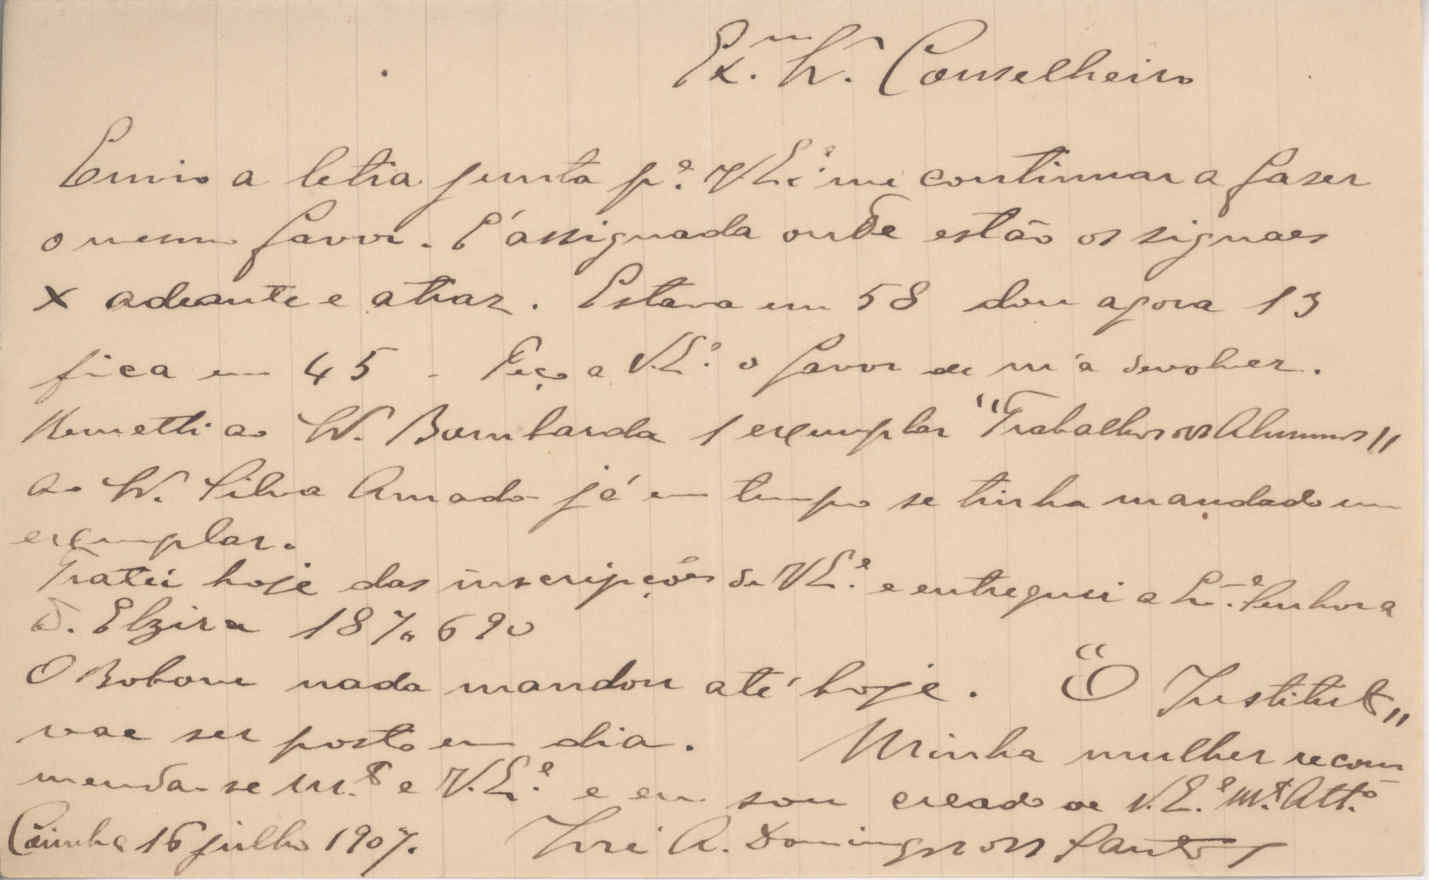 Ex.mo Sr. Conselheiro
Envio a letra junta pª. V.Exª me continuar a faser
o mesmo favor. É assignada onde estão os signaes
X adeante e atraz. Estava em 58 dou agora 13
fica em 45 - Peço a V.Eª. o favor de m'a devolver.
Remetti ao Sr. Bombarda 1 exemplar "Trabalhos dos Alumnos"
ao Sr. Silva Amado já em tempo se tinha mandado um
exemplar.
Tratei hoje das inscripções de V.Eª. e entreguei a Sr.ª Senhora
D. Elzira 187,,690
O Bobone nada mandou até hoje. "O Instituto"
vae ser posto em dia. Minha mulher recom
menda-se m.to a V.Eª. e eu sou creado de V.Eª. m.to Att.º
Coimbra 16 julho 1907. José A. Domingos dos Santos